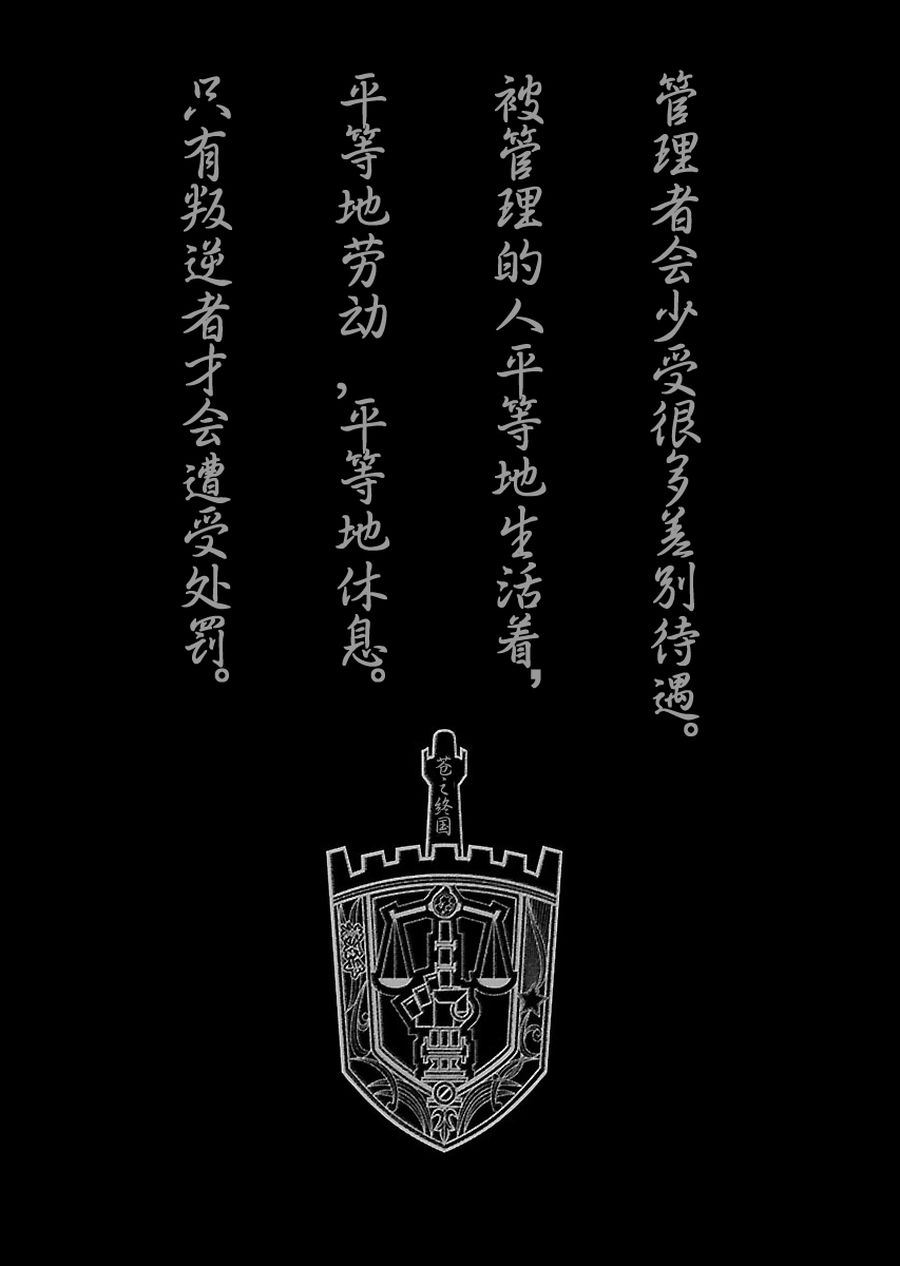 管理者会少受很多差别待遇。
被管理的人平等地生活着，
平等地劳动，平等地休息。
只有叛逆者才会遭受处罚。
苍之终国